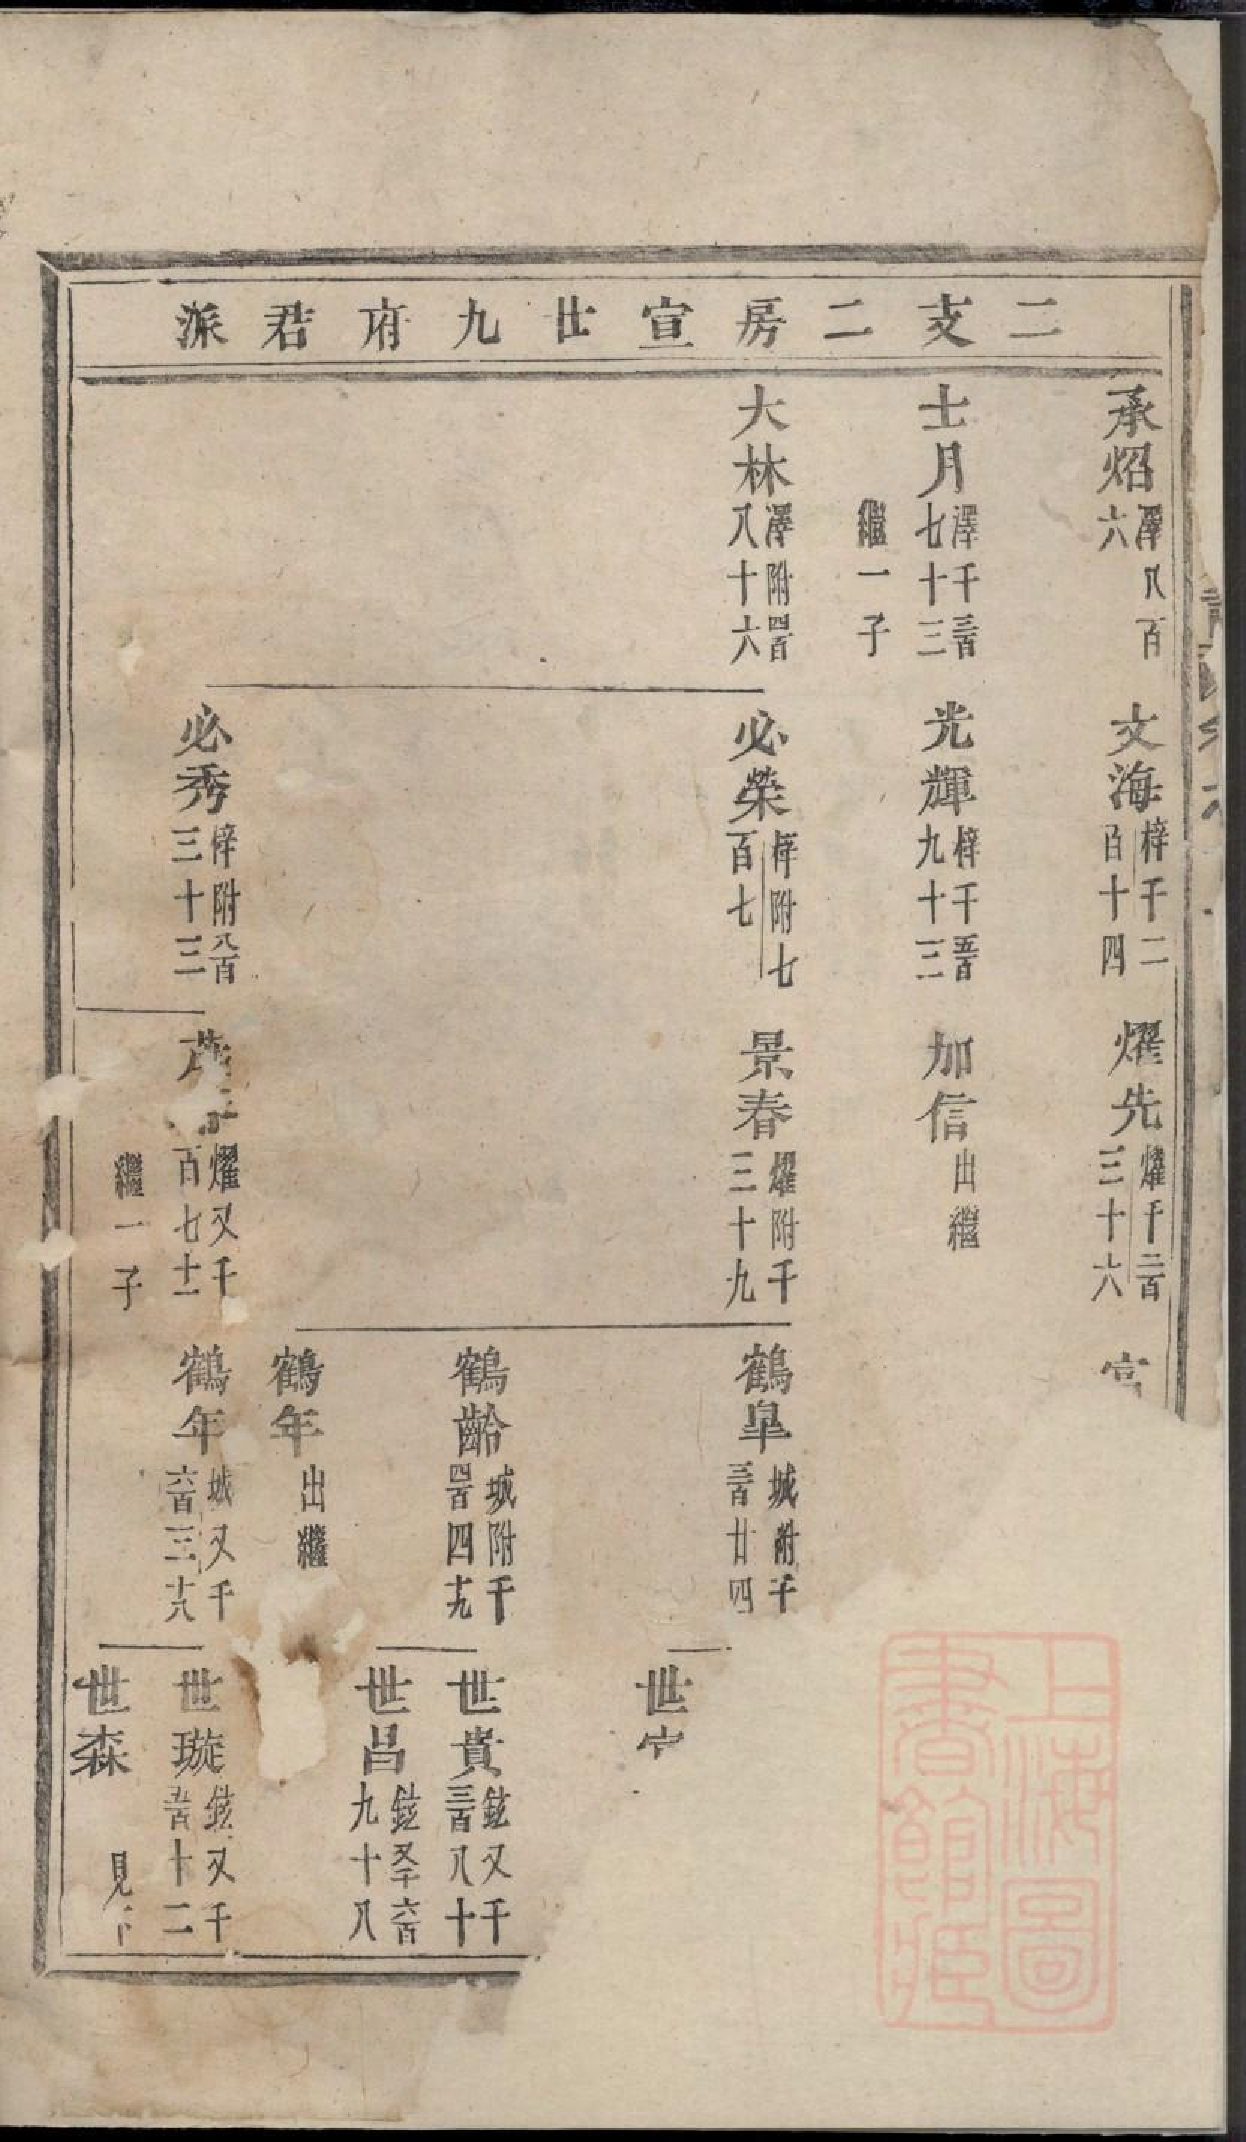 二支二房宣廿九府君派
承炤澤八百六
文海梓千二百十四
燿先燿千三百三十六
士月澤千三百七十三
繼一子
光輝梓千五百九十三
加信出繼
大林澤附四百八十六
必榮梓附七百七
景春燿附千三十九
鶴臯城附千三百廿四
世
鶴齡城附千四百四十九
世貴鉉又千三百八十
世昌鉉又千六百九十八
鶴年出繼
必秀梓附八百三十三
燿又千百七十一
繼一子
鶴年城又千六百三十八
世璇鉉又千五百十二
世森見下
上海圖書館藏